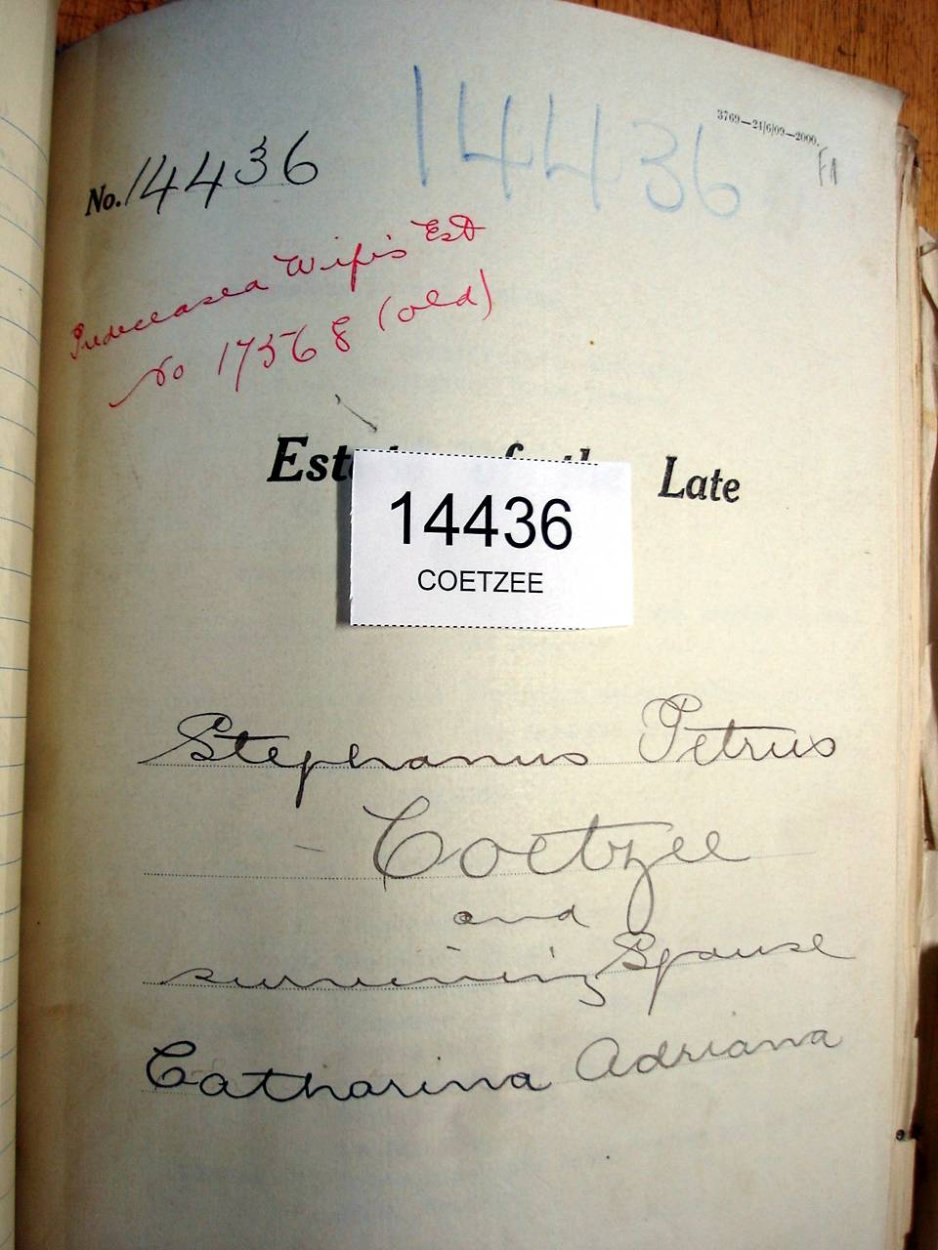 3769—21/6/09—2000.
14436
FA
No. 14436
Predeceased Wife's Est
No 17568 (old)
Estate of the Late
14436
COETZEE
Stephanus Petrus
Coetzee
and
surviving Spouse
Catharina Adriana